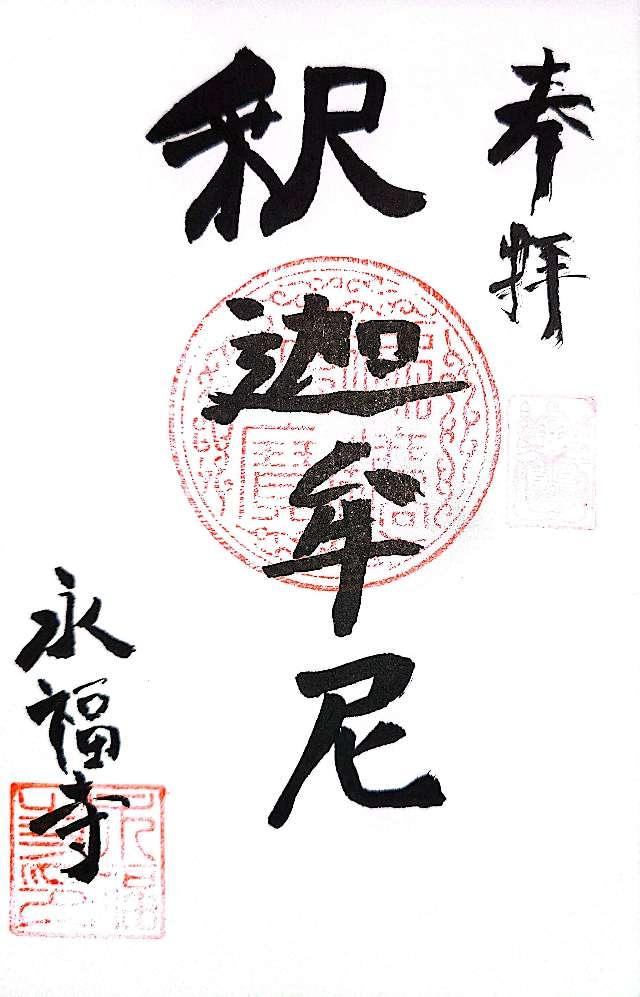 奉拝
釈迦牟尼
永福寺